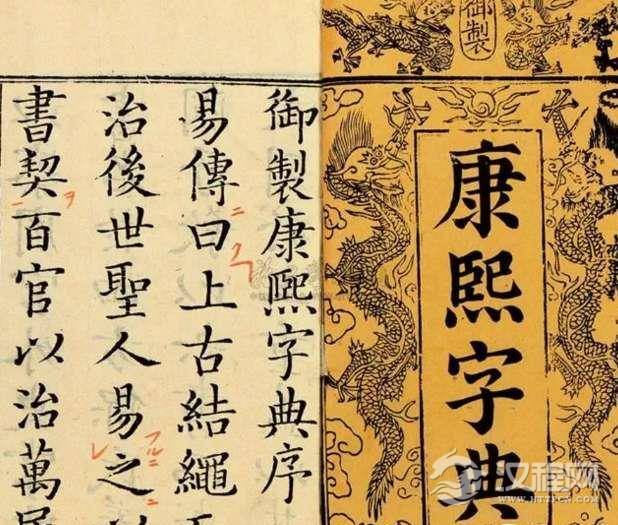 御製
康熙字典
御製康熙字典序
易傳曰上古結繩
治後世聖人易之
書契百官以治萬民
汉程网
WWW.HTTPCN.COM